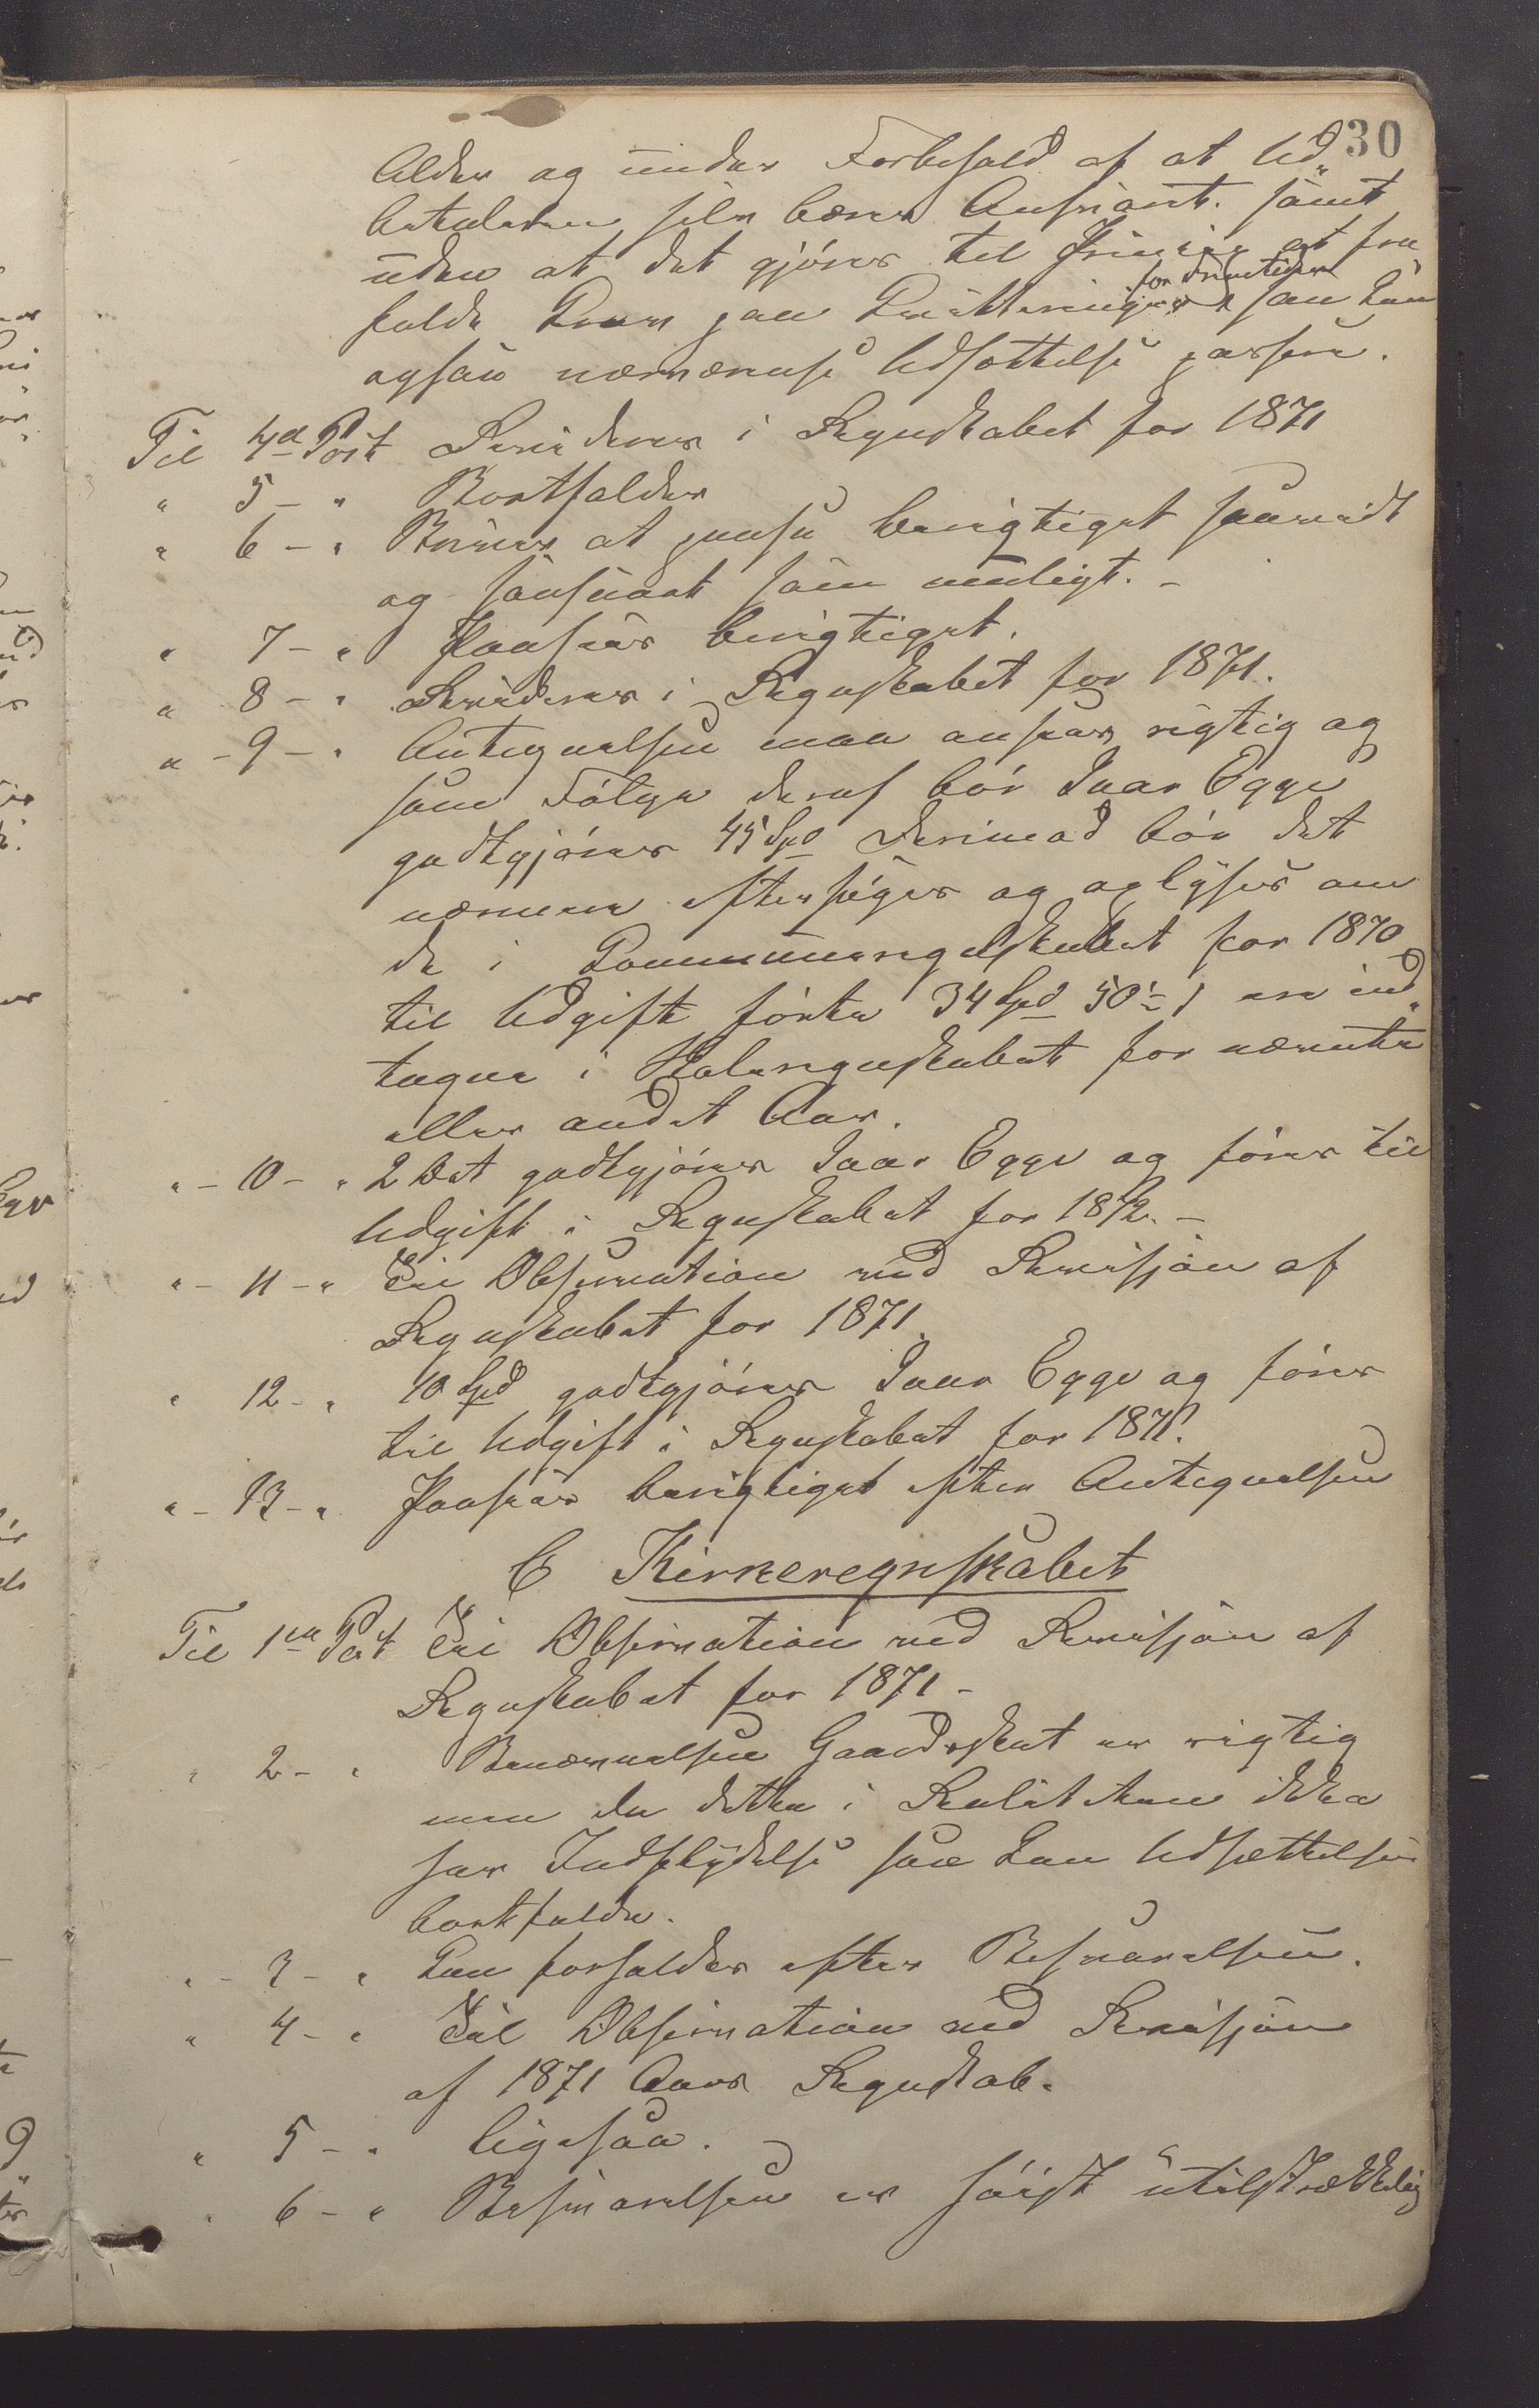 30
Alder og under Forbehold af at Ud„
betaleren selv bærer Ansvaret. samt
uden at det gjøres til Princip at fra„
falde Krav paa Qvitteringer for Fremtiden kan
ogsaa nærværende Udsættelse passere.
Til 4de Post Revideres i Regnskabet for 1871
" 5 - " Bortfalder
" 6 - " Bringes at paasee berigtiget saavidt
og saasnart som muligt. -
" 7 - " Paasees berigtiget.
" 8 - " Revideres i Regnskabet for 1871.
" - 9 - " Antegnelsen maa ansees rigtig og
som Følge deraf bør Ivar Egge
godtgjøres 45 Spd Derimod bør det
nærmere eftersøges og oplyses om
de i Communeregnskabet for 1870
til Udgift førte 34 Spd 50 s er ind„
tagne i Skoleregnskabet for nævnte
eller andet Aar.
" - 10 - " 2 Ort godtgjøres Ivar Egge og føres til
Udgift i Regnskabet for 1872. -
" - 11 - " Til Observation ved Revisjon af
Regnskabet for 1871.
" 12 - " 10 Spd godtgjøres Ivar Egge og føres
til Udgift i Regnskabet for 1871.
" - 13 - " Paasees berigtiget efter Antegnelsen
C Kirkeregnskabet
Til 1ste Post Til Observation ved Revisjon af
Regnskabet for 1871 -
" 2 - " Benævnelsen Gaardskat er rigtig
men da dette i Realiteten ikke
har Indflydelse saa kan Udsættelsen
bortfalde.
" - 3 - " Kan forholdes efter Besvarelsen.
" 4 - " Til Observation ved Revisjon
af 1871 Aars Regnskab.
" 5 - " ligesaa.
" 6 - " Besvarelsen er høist utilstrækkelig